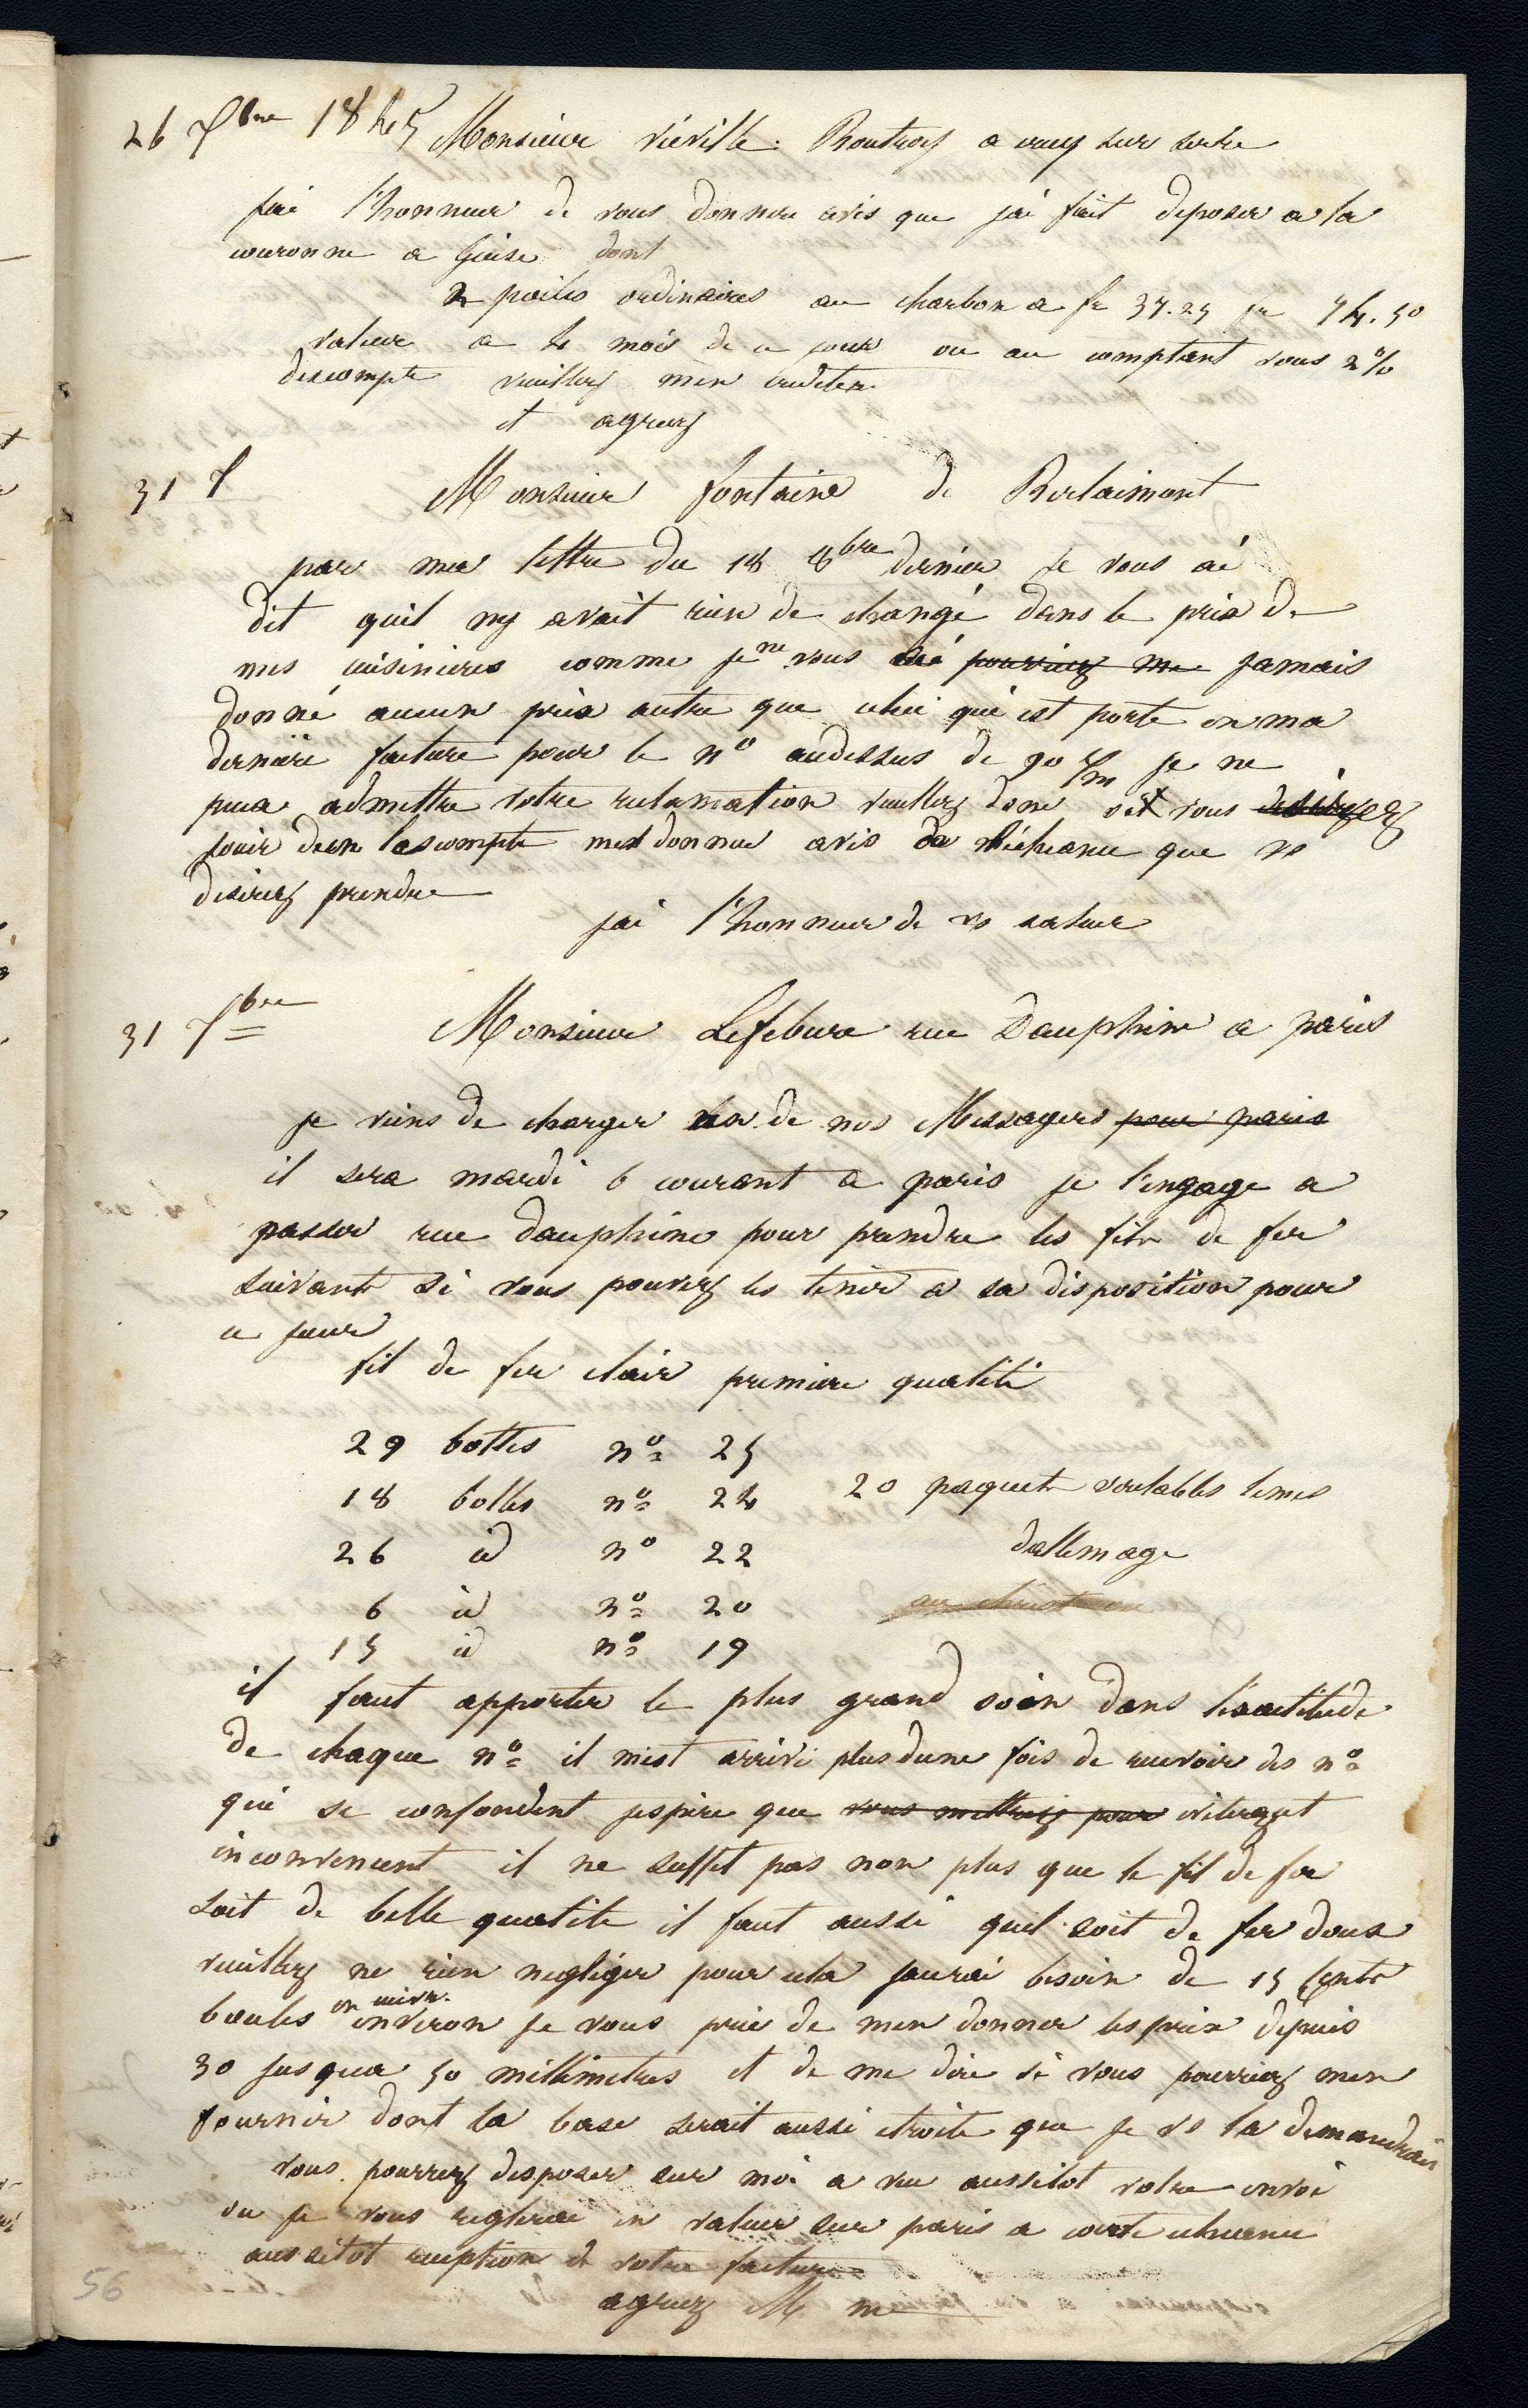 26 Xbre 1845 Monsieur viéville Routroy a crecy sur serre
jai l'honneur de vous donner avis que jai fait deposer a la
couronne a Guise dont
2 poiles ordinaires au charbon a fr 37.25 fr 74.50
valeur a 4 mois de ce jour ou au comptant sous 2 %
descompte veuillez men crediter
et agreez
31 X Monsieur fontaine de Berlaimont
par ma lettre du 18 8bre dernier je vous ai
dit quil ny avait rien de changé dans le prix de
mes cuisinieres comme je ne vous ai pouviez me jamais
donné aucun prix autre que celui qui est porte en ma
derniere facture pour le no audessus de 90 c/m je ne
puis admettre votre reclamation veuillez donc si vous desirez
jouir dun lescompte me donner avis de lécheance que vs
desirez prendre
jai l'honneur de vs saluer
31 Xbre Monsieur Lefebure rue Dauphine a paris
je viens de charger un de nos Messagers pour paris
il sera mardi 6 courant a paris je l'engage a
passer rue dauphine pour prendre les fils de fer
suivants si vous pouvez les tenir a sa disposition pour
ce jour
fil de fer clair premiere qualité
29 bottes no 25
18 bottes no 24 20 paquets veritables limes
26 id no 22 dallemage
6 id no 20
15 id no 19
il faut apporter le plus grand soin dans lexactitude
de chaque no il mest arrivé plus dune fois de recevoir des no
qui se confondent jespere que vous mettriez pour eviterez cet
inconvenient il ne suffit pas non plus que le fil de fer
soit de belle qualite il faut aussi quil soit de fer doux
veuillez ne rien negliger pour cela jaurai besoin de 15 cents
boules en cuivr. environ je vous prie de men donner les prix depuis
30 jusqua 50 millimetres et de me dire si vous pourriez men
fournir dont la base serait aussi etroite que je vs la demandrais
vous pourrez disposer sur moi a vue aussitot votre envoi
ou je vous reglerai en valeur sur paris a courte echeance
aussitot reception de votre facture
agreez M me
56